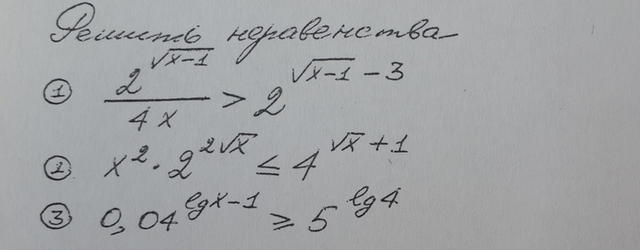 Решить неравенства
① 2^√(x-1) / 4x > 2^(√(x-1) - 3)
② x² · 2^(2√x) ≤ 4^(√x + 1)
③ 0,04^(lgx-1) ≥ 5^(lg4)